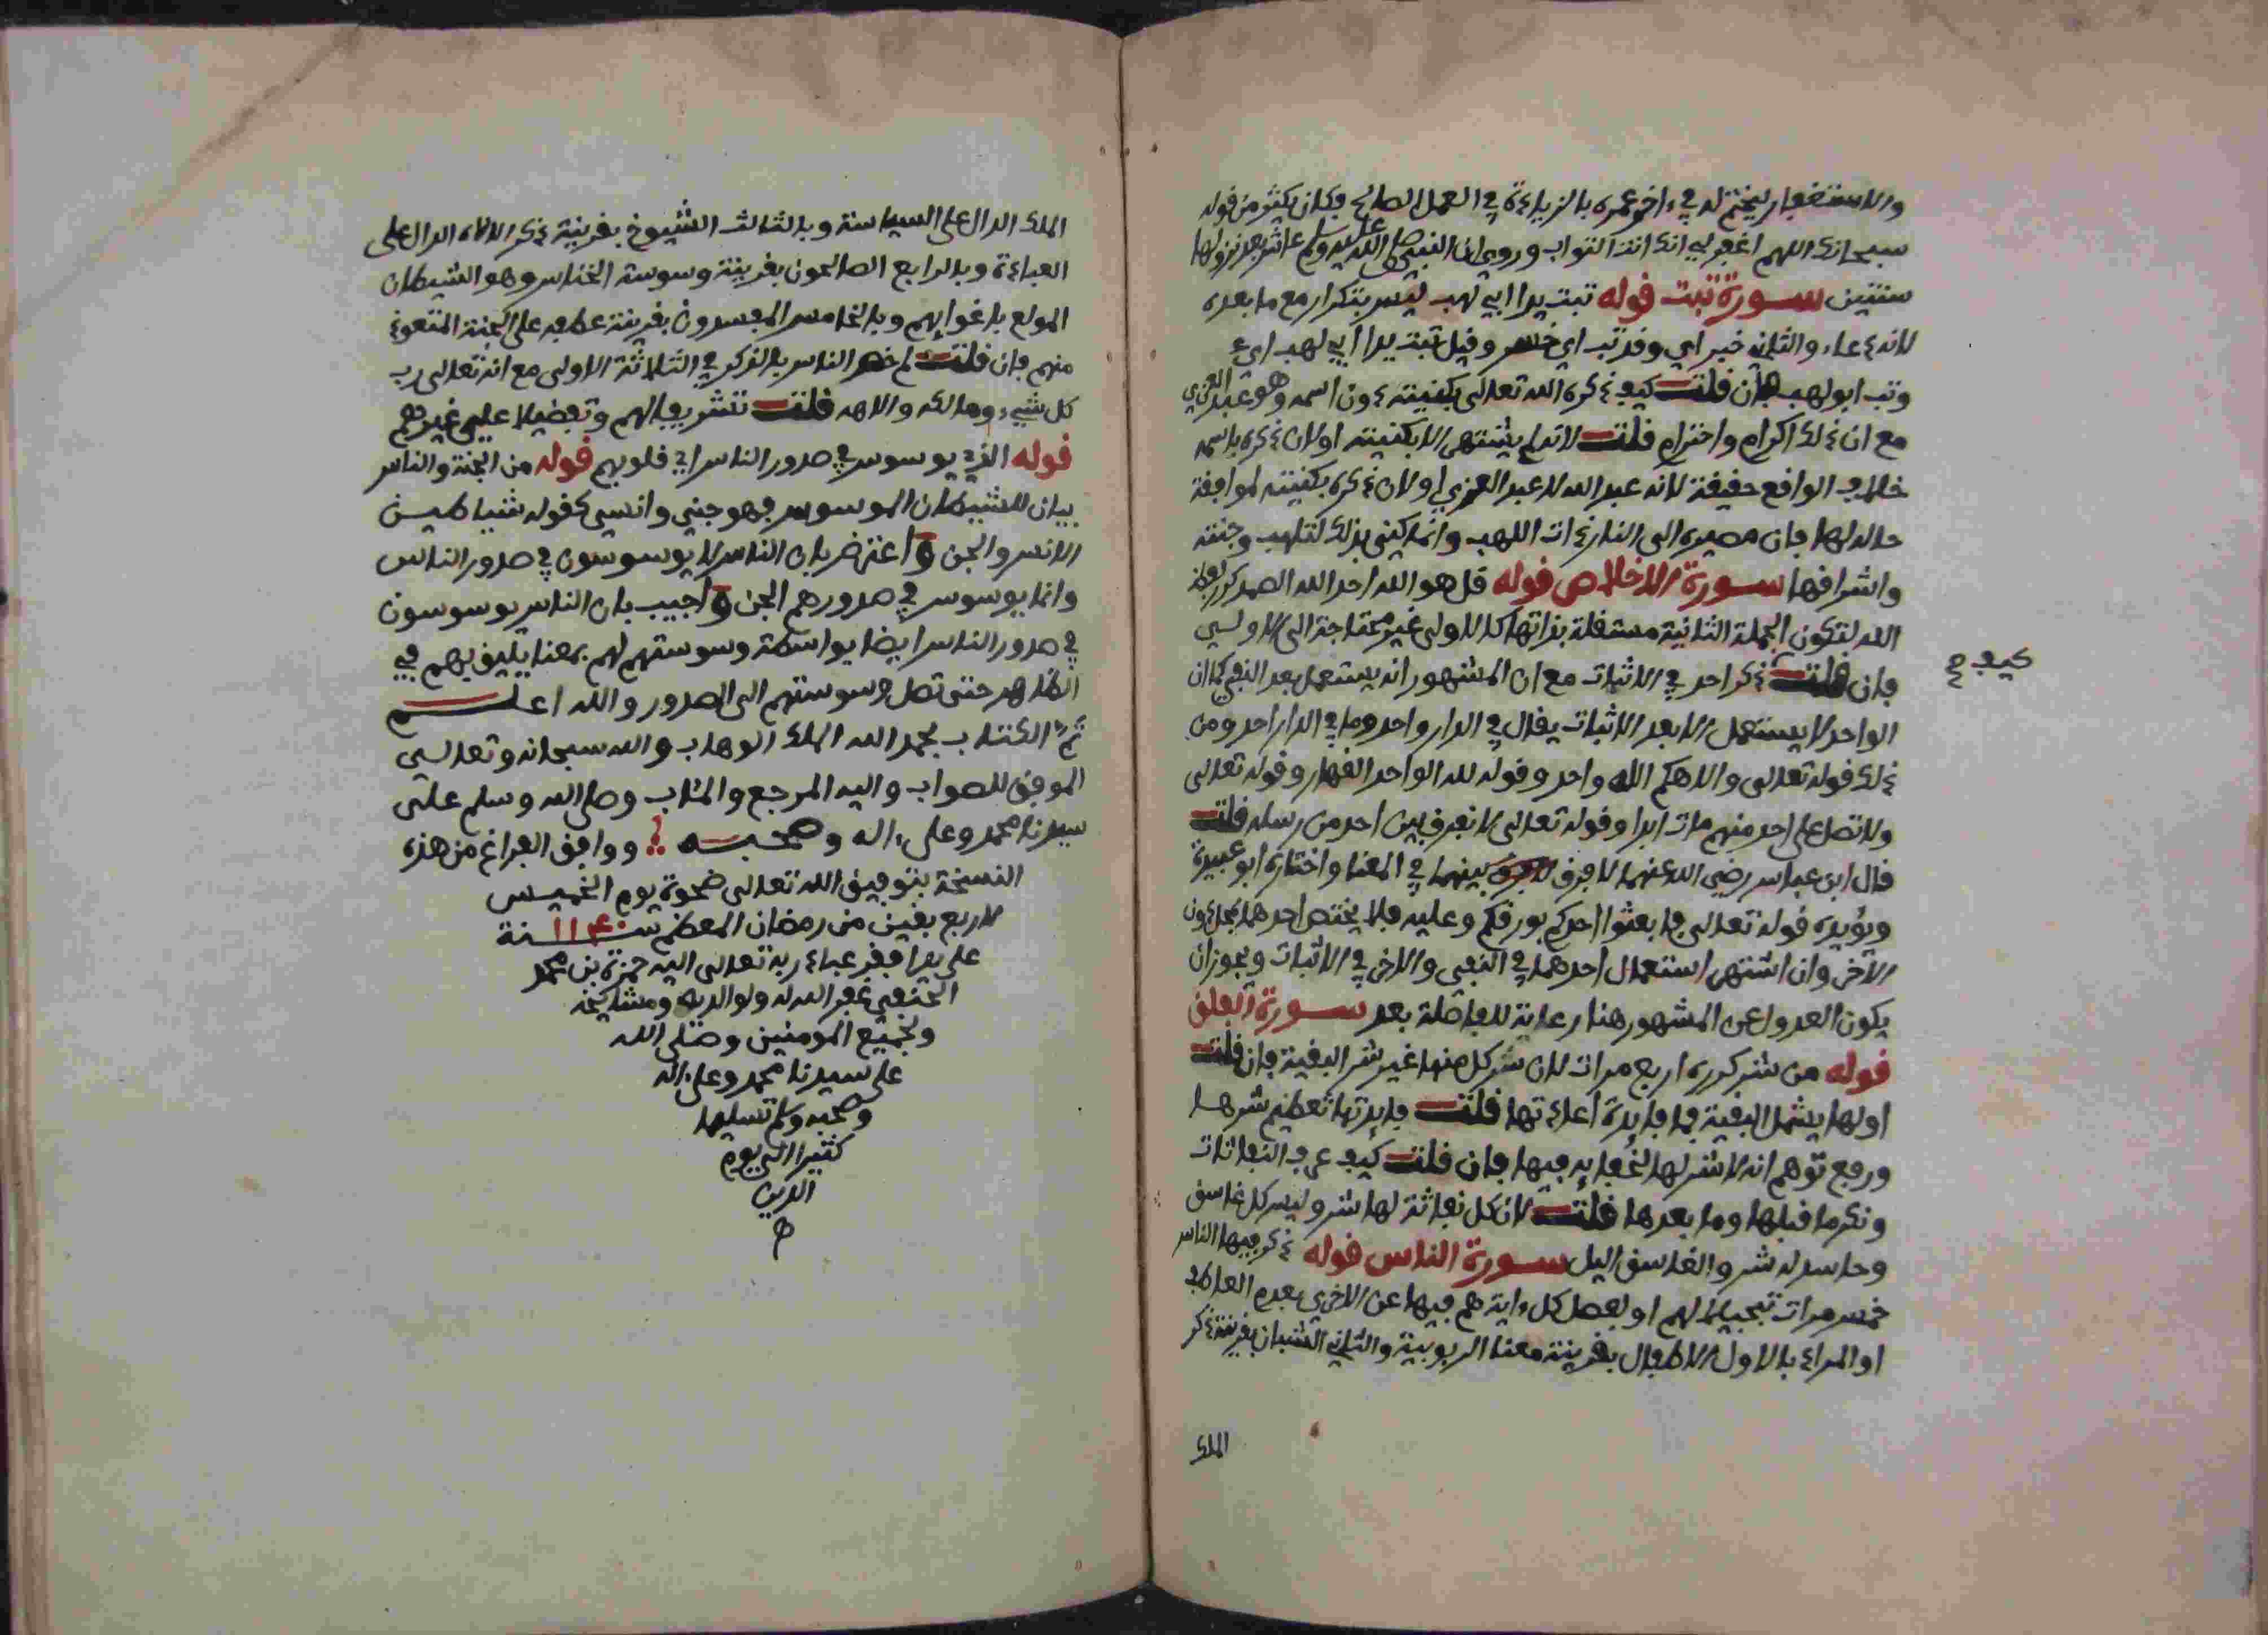 والاستغفار ليختم له في ءاخر عمره بالزيادة في العمل الصالح فكان يكثر من قوله
سبحانك اللهم اغفر لي انك انت التواب وروي ان النبي صلى الله عليه وسلم عاش بعد نزولها
سنتين سورة تبت قوله تبت يدا ابي لهب ليس بتكرار مع ما بعده
لانه دعاء والثاني خبر اي وقد تب اي خسر وقيل تبت يدا ابي لهب اي
وتب ابو لهب فإن قلت كيف ذكره الله تعالى بكنيته دون اسمه وهو عبد العزى
مع ان ذلك اكرام واحترام قلت لانه لم يشتهر الا بكنيته او لان ذكره باسمه
خلاف الواقع حقيقة لانه عبد الله لا عبد العزى او لان ذكره بكنيته لموافقة
حاله لها فان مصيره الى النار ذات اللهب وانما كني بذلك لتلهب وجنته
واشراقها سورة الاخلاص قوله قل هو الله احد الله الصمد كرر لفظ
الله لتكون الجملة الثانية مستقلة بذاتها كالاولى غير محتاجة الى الاولى
فان قلت ذكر احد في الاثبات مع ان المشهور انه يستعمل بعد النفي كما ان
كيف صح
الواحد لا يستعمل الا بعد الاثبات يقال في الدار واحد وما في الدار احد ومن
ذلك قوله تعالى والاهكم اله واحد وقوله لله الواحد القهار وقوله تعالى
ولا تصل على احد منهم مات ابدا وقوله تعالى لا نفرق بين احد من رسله قلت
قال ابن عباس رضي الله عنهما لا فرق بينهما في المعنا واختاره ابو عبيدة
ويؤيده قوله تعالى فابعثوا احدكم بورقكم وعليه فلا يختص احدهما بمحل دون
الآخر وان اشتهر استعمال احدهما في النفي والاخر في الاثبات ويجوز ان
يكون العدول عن المشهور هنا رعاية للفاصلة بعد سورة الفلق
قوله من شر كرره اربع مرات لان شر كل منها غير شر البقية فان قلت
اولها يشمل البقية فما فايدة اعادتها قلت فايدتها تعظيم شرها
ورفع توهم انه لا شر لها لخفايه فيها فان قلت كيف عرف النفاثات
ونكر ما قبلها وما بعدها قلت لان كل نفاثة لها شر وليس كل غاسق
وحاسد له شر والغاسق اليل سورة الناس قوله ذكر فيها الناس
خمس مرات تبجيلا لهم او لفصل كل ءاية هم فيها عن الاخرى بعدم العاطف
او المراد بالاول الاطفال بقرينة معنا الربوبية والثاني الشبان بقرينة ذكر
الملك
الملك الدال على السياسة وبالثالث الشيوخ بقرينة ذكر الالاه الدال على
العبادة وبالرابع الصالحون بقرينة وسوسة الخناس وهو الشيطان
المولع باغوايهم وبالخامس المفسدون بقرينة عطفه على الجنة المتعوذ
منهم فان قلت لم خص الناس بالذكر في الثلاثة الاولى مع انه تعالى رب
كل شيء ومالكه والاهه قلت تشريفا لهم وتفضيلا على غيرهم
قوله الذي يوسوس في صدور الناس اي قلوبهم قوله من الجنة والناس
بيان للشيطان الموسوس فهو جني وانسي كقوله شياطين
الانس والجن واعترض بان الناس لا يوسوسون في صدور الناس
وانما يوسوس في صدورهم الجن واجيب بان الناس يوسوسون
في صدور الناس ايضا بواسطة وسوستهم لهم بمعنا يليق بهم في
الظاهر حتى تصل وسوستهم الى الصدور والله اعلم
تم الكتاب بحمد الله الملك الوهاب والله سبحانه وتعالى
الموفق للصواب واليه المرجع والمئاب وصلى الله وسلم على
سيدنا محمد وعلى ءاله وصحبه ووافق الفراغ من هذه
النسخة بتوفيق الله تعالى ضحوة يوم الخميس
لاربع بقين من رمضان المعظم سنة ١١٤٠
على يد افقر عباد ربه تعالى اليه حمزة بن محمد
الحنفي غفر الله له ولوالديه ومشايخه
ولجميع المومنين وصلى الله
على سيدنا محمد وعلى ءاله
وصحبه وسلم تسليما
كثيرا الى يوم
الدين